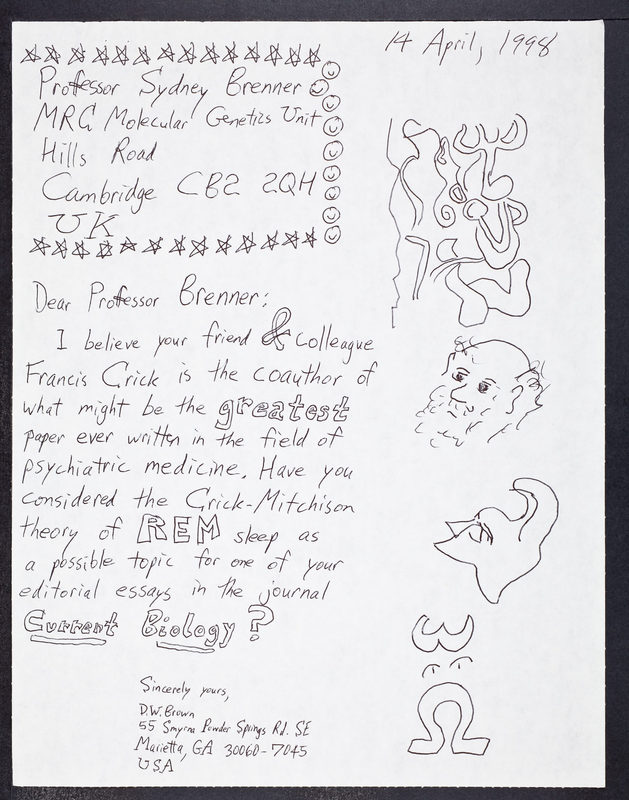 14 April, 1998
Professor Sydney Brenner
MRC Molecular Genetics Unit
Hills Road
Cambridge CB2 2QH
UK
Dear Professor Brenner:
I believe your friend & colleague
Francis Crick is the coauthor of
what might be the greatest
paper ever written in the field of
psychiatric medicine. Have you
considered the Crick-Mitchison
theory of REM sleep as
a possible topic for one of your
editorial essays in the journal
Current Biology?
Sincerely yours,
D.W. Brown
55 Smyrna Powder Springs Rd. SE
Marietta, GA 30060-7045
USA
ω
Ω